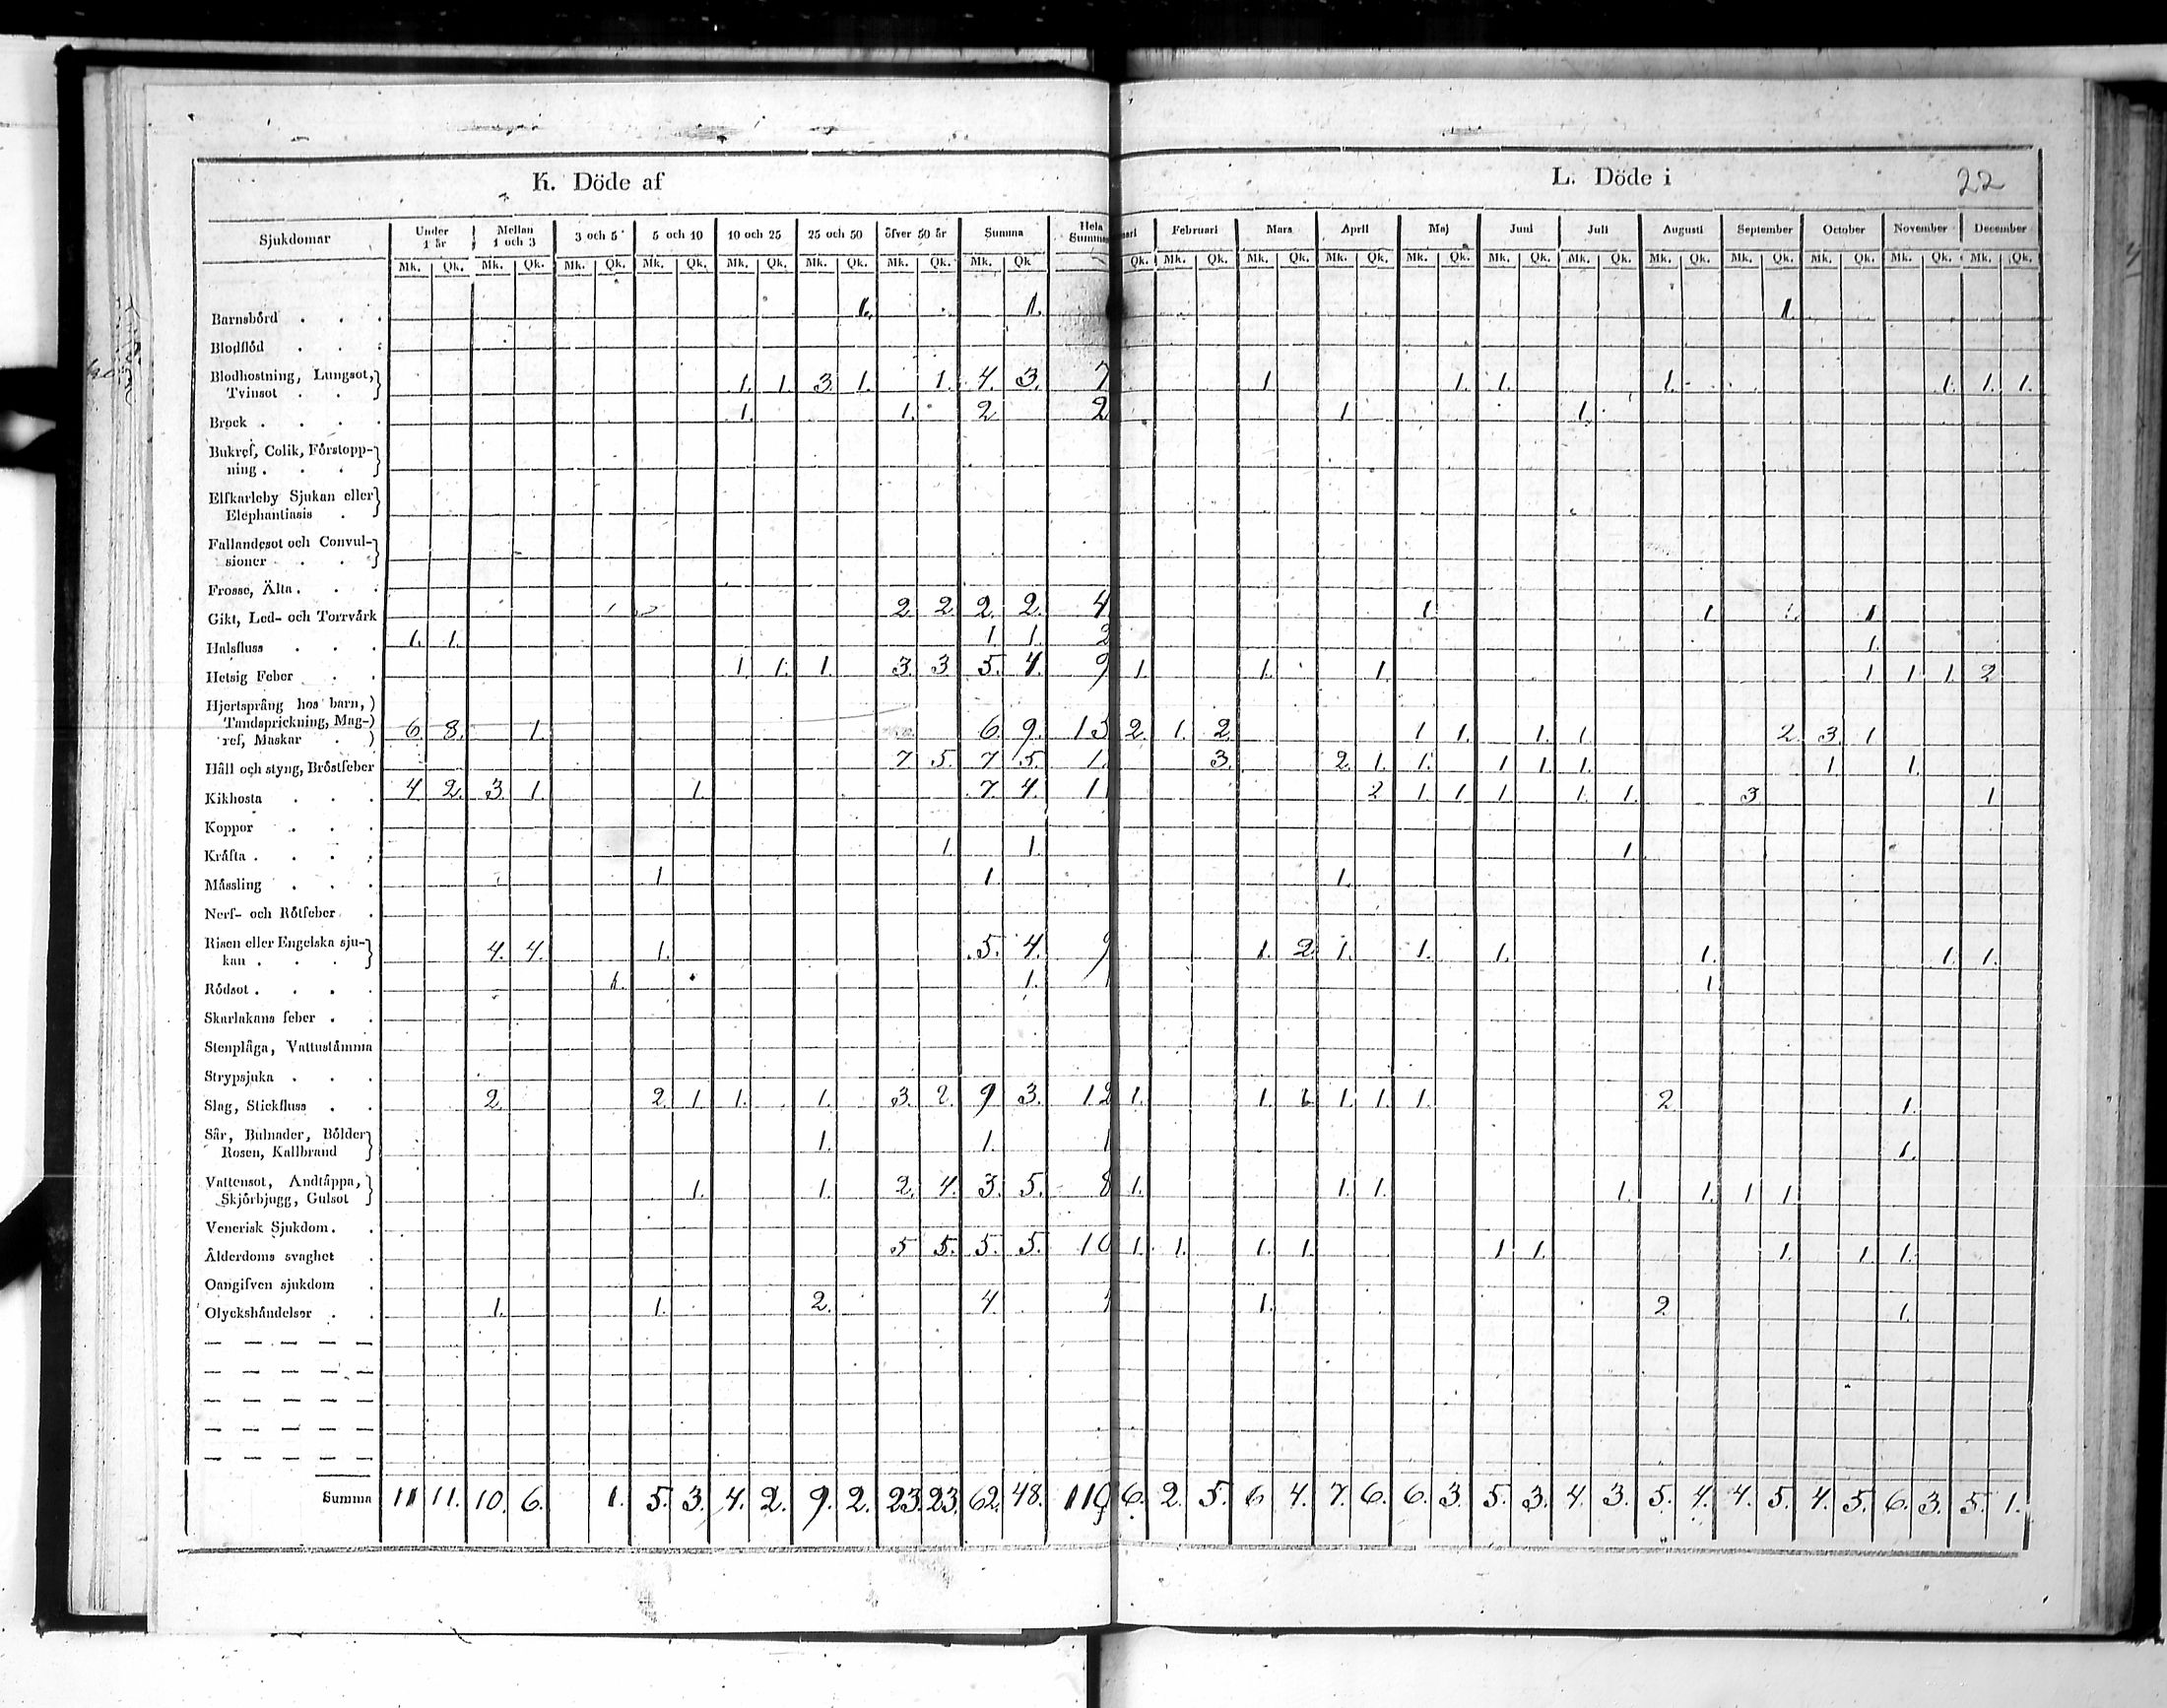 K. Döde af
L. Döde i
22
Sjukdomar | Under 1 år | Mellan 1 och 3 | 3 och 5 | 5 och 10 | 10 och 25 | 25 och 50 | öfver 50 år | Summa | Hela Summa | Februari | Mars | April | Maj | Juni | Juli | Augusti | September | October | November | December
Mk. Qk. Mk. Qk. Mk. Qk. Mk. Qk. Mk. Qk. Mk. Qk. Mk. Qk. Mk. Qk | Qk. Mk. Qk. Mk. Qk. Mk. Qk. Mk. Qk. Mk. Qk. Mk. Qk. Mk. Qk. Mk. Qk. Mk. Qk. Mk. Qk. Mk. Qk.
Barnsbörd . . . 1. 1. 1.
Blodflöd . . .
Blodhostning, Lungsot,
Tvinsot . . 1. 1. 3. 1. 1. 4. 3. 7 1 1. 1. 1. 1. 1. 1.
Bråck . . . . 1. 1. 2 2 1 1.
Bukref, Colik, Förstopp-
ning . . .
Elfkarleby Sjukan eller
Elephantiasis .
Fallandesot och Convul-
sioner . . .
Frossa, Älta . . .
Gikt, Led- och Torrvärk 2. 2. 2. 2. 4 1. 1. 1. 1
Halsfluss . . . 1. 1. 1 1. 2 1.
Hetsig Feber . . 1. 1. 1. 3. 3 5. 4. 9 1. 1. 1. 1 1 1. 2
Hjertsprång hos barn,
Tandsprickning, Mag-
ref, Maskar . 6. 8. 1. 6. 9. 15 2. 1. 2. 1 1. 1. 1 2. 3. 1
Håll och styng, Bröstfeber 7 5. 7 5. 3. 2. 1. 1. 1 1. 1. 1. 1.
Kikhosta . . . 4 2. 3. 1. 1. 7. 4. 11 2 1. 1. 1. 1. 1. 3. 1
Koppor . . .
Kräfta . . . . 1. 1. 1
Mässling . . . 1 1 1.
Nerf- och Rötfeber .
Risen eller Engelska sju-
kan . . . 4. 4. 1. 5. 4. 9 1. 2 1. 1. 1. 1. 1. 1.
Rödsot . . . . 1. 1. 1 1.
Skarlakans feber . .
Stenplåga, Vattustämma
Strypsjuka . . .
Slag, Stickfluss . . 2. 2. 1 1. 1. 3. 2. 9 3. 12 1. 1. 1. 1. 1. 1. 2. 1.
Sår, Bulnader, Bölder
Rosen, Kallbrand 1. 1. 1 1.
Vattensot, Andtäppa,
Skjörbjugg, Gulsot 1. 1. 2. 4. 3. 5. 8 1. 1. 1. 1. 1. 1 1.
Venerisk Sjukdom . .
Ålderdoms svaghet . 5 5. 5. 5. 10 1. 1. 1. 1. 1 1. 1. 1. 1.
Oangifven sjukdom .
Olyckshändelser . . 1. 1. 2. 4. 1. 2. 1.
Summa 11 11. 10. 6. 1. 5. 3. 4. 2. 9. 2. 23. 23. 62. 48. 110 6. 2. 5. 6 4. 7. 6. 6. 3. 5. 3. 4. 3. 5. 4. 4. 5. 4. 5. 6. 3. 5. 1.